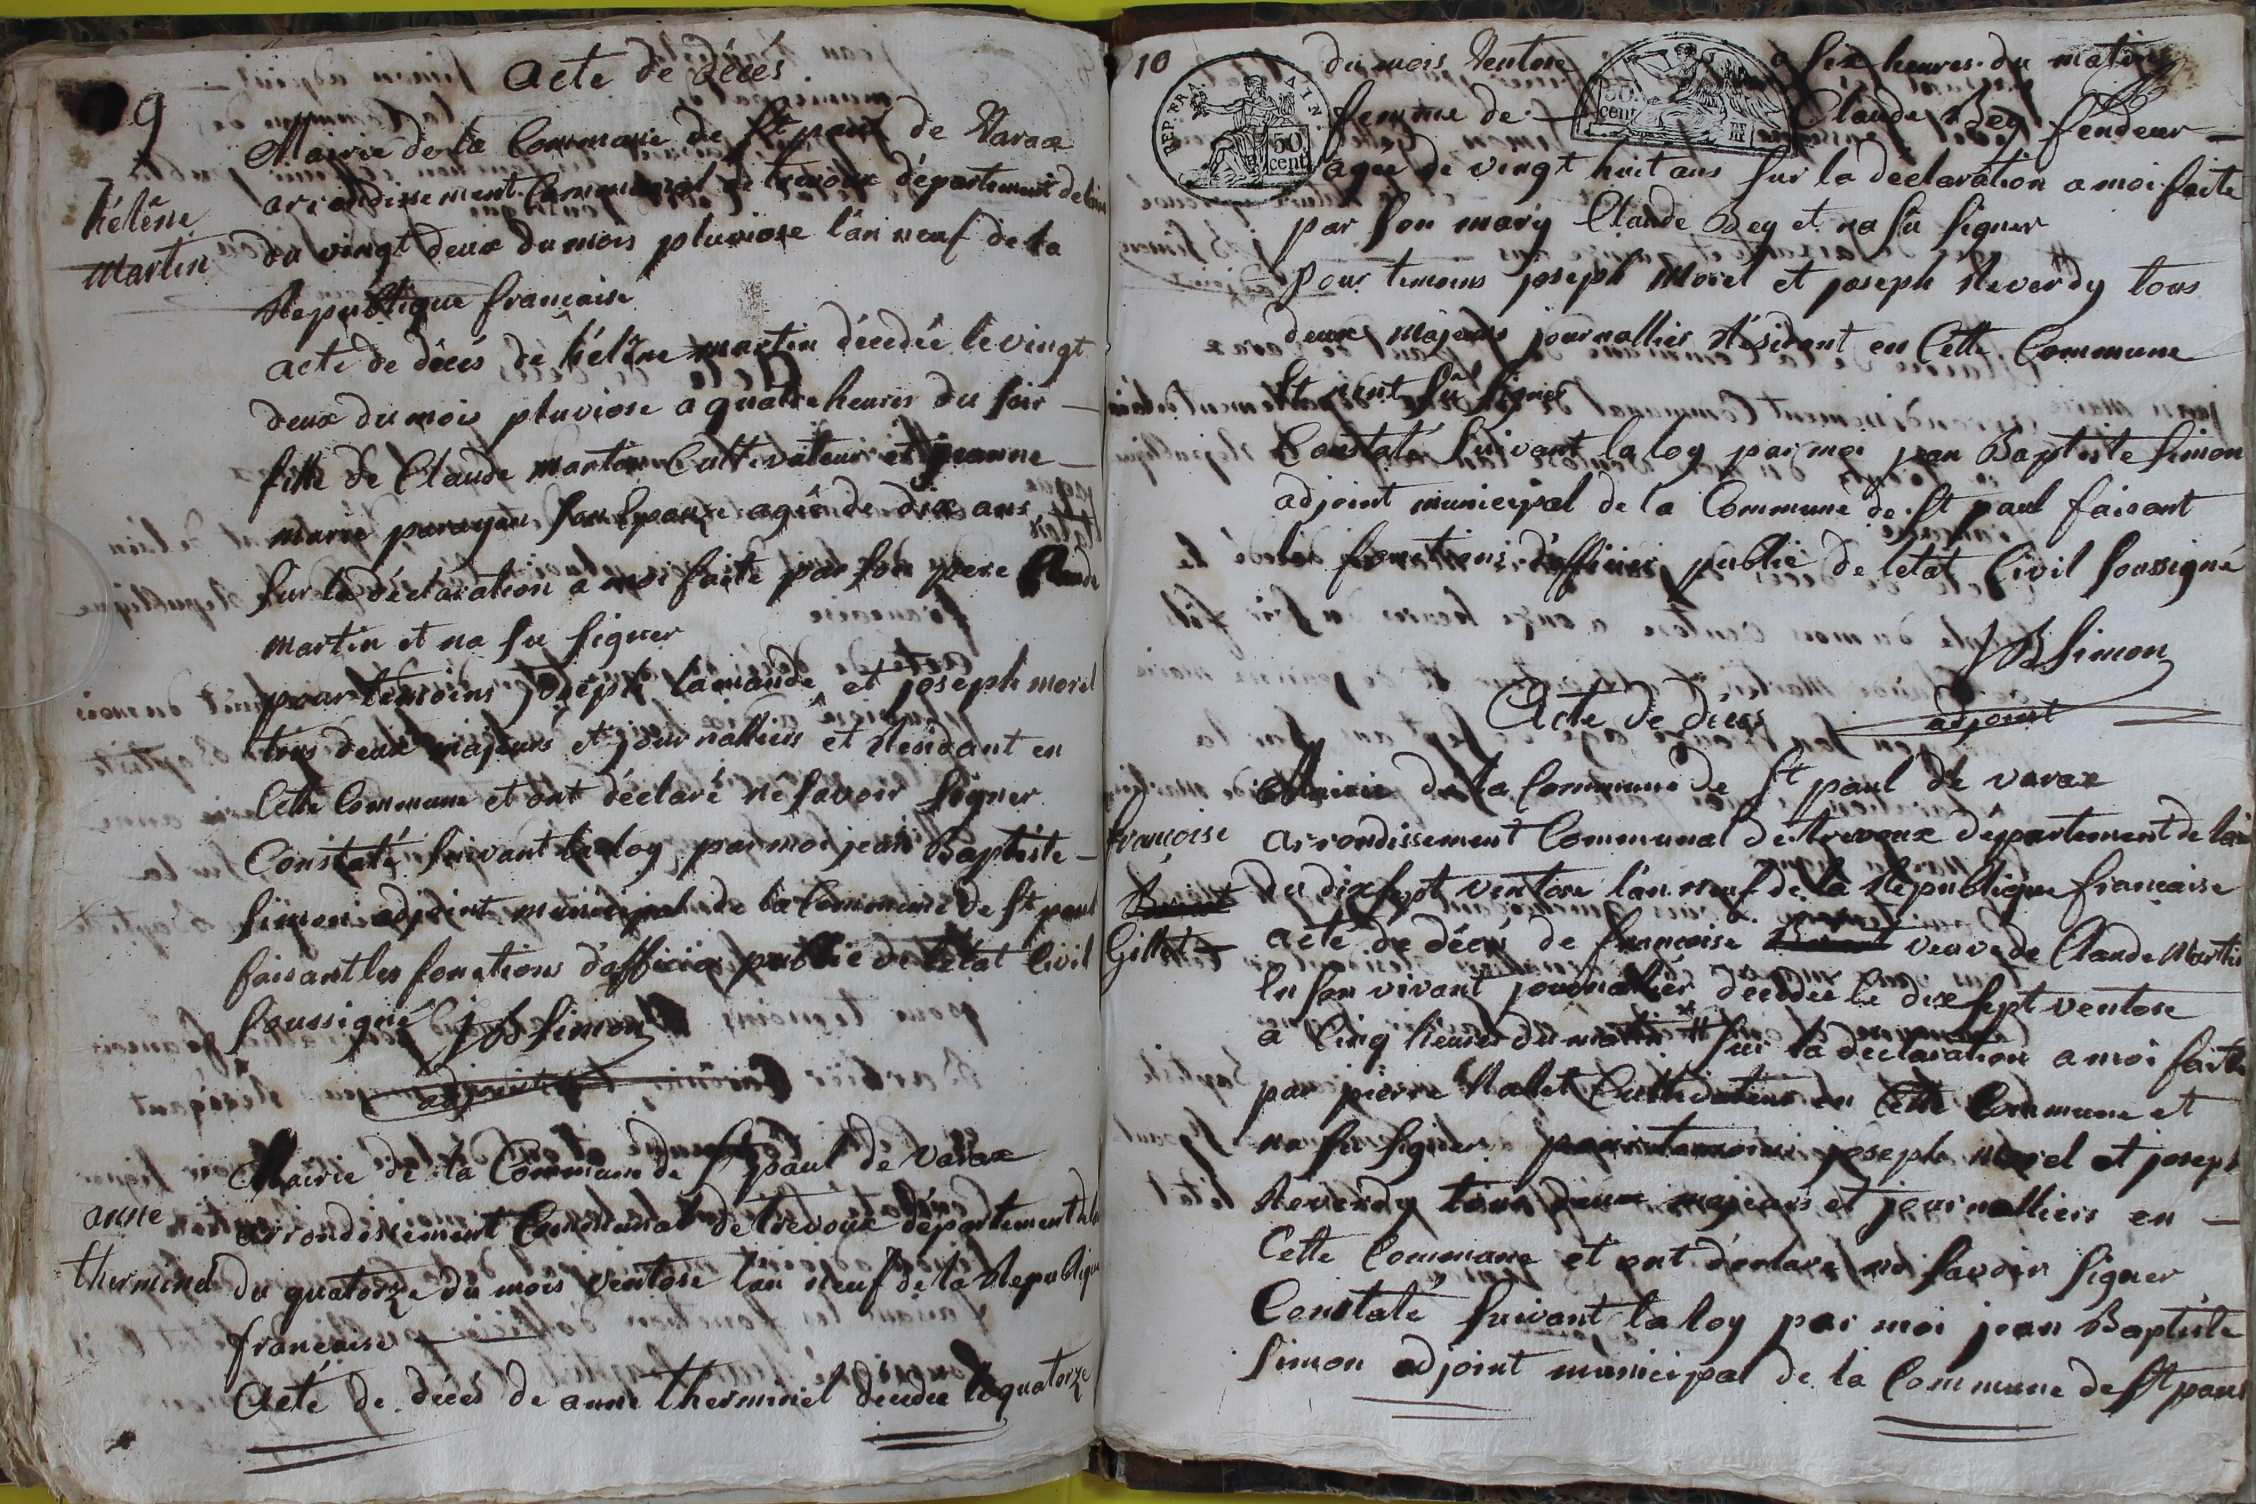 9
acte de décès
Mairie de la Commune de St paul de Varax
arrondissement Communal de trevoux département de lain
hélêne
martin
du vingt deux du mois pluviose l'an neuf de la
Republique francaise
acte de décés de hélêne martin décedée le vingt
deux du mois pluviose a quatre heures du soir —
fille de Claude martin Cultivateur et jeanne —
marie son Epouze agée de dix ans
sur la déclaration a moi faite par son pere Claude
martin et na su signer
pour temoins Joseph et joseph morel
tous deux majeurs et journalliers et Residant en
Cette Commune et ont déclaré ne savoir signer
Constaté suivant la loy par moi jean Baptiste —
simon adjoint municipal de la Commune de St paul
faisant les fonctions dofficier public de letat Civil
soussigné JB Simon
adjoint
Mairie de la Commune de St paul de varax
anne
thermend
arrondissement Communal de trevoux département de
du quatorze du mois ventose lan neuf de la Republique
francaise
Acte de décès de anne therminel décédée le quatorze
10
REP. FRA. AIN.
50 cent.
50. cent
du mois Ventose a six heures du matin
femme de Claude Bey fendeur —
agée de vingt huit ans sur la déclaration a moi faite
par son mary Claude Bey et na sû signer
pour temoins joseph Morel et joseph Reverdy tous
deux majeurs journallier Résidant en Cette Commune
Et nont sû signer
Constaté suivant la loy par moi jean Baptiste simon
adjoint municipal de la Commune de St paul faisant
les fonctions dofficier public de letat Civil soussigné
JB Simon
adjoint
Acte de décès
Mairie de la Commune de St paul de varax
françoise
Gillet
arrondissement Communal de trevoux département de lain
du dix sept ventose l'an neuf de la Republique francaise
acte de décés de francoise veuve de Claude Martin
En son vivant journallier décédée le dix sept ventose
a Cinq heures du matin # sur la déclaration a moi faite
par pierre Cultivateur en Cette Commune et
na su signer pour temoins joseph Morel et joseph
Reverdy tous deux majeurs et journalliers en —
Cette Commune et ont déclaré ne savoir signer
Constaté suivant la loy par moi jean Baptiste
simon adjoint municipal de la Commune de St paul